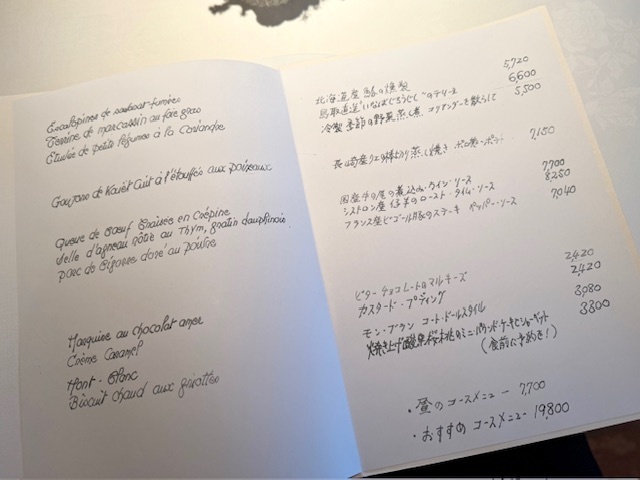 Escalopines de saumon fumées
Terrine de marcassin au foie gras
Etuvée de petits légumes à la Coriandre
Goujons de Kuét Cuit à l'étouffés aux poireaux
Queue de Boeuf Braisée en Crépine
Selle d'agneau rôtie au Thym, gratin dauphinois
porc de Bigorre doré au poivre
Marquise au chocolat amer
Crème Caramel
Mont-Blanc
Biscuit chaud aux griottes
北海道産 鮭の燻製 5,720
鳥取直送"いなばじろうじし"のテリーヌ 6,600
冷製 季節の野菜蒸し煮 コリアンダーを散らして 5,500
長崎産クエの棒切り蒸し焼き ポロ葱 7,150
国産牛の尾の煮込み ワイン・ソース 7,700
シストロン産 仔羊のロースト・タイム・ソース 8,250
フランス産ビゴール豚のステーキ ペッパー・ソース 7,040
ビターチョコレートのマルキーズ 2,420
カスタード・プディング 2,420
モン・ブラン コート・ドールスタイル 3,080
焼き上げ のミニパウンドケーキとシャーベット 3300
(食前に予約を!)
・昼のコースメニュー 7,700
・おすすめコースメニュー 19,800